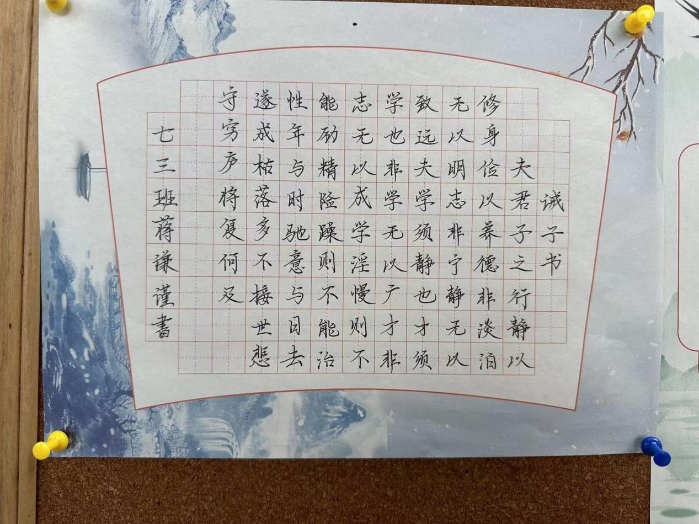 诫子书
夫君子之行静以
修身俭以养德非淡泊
无以明志非宁静无以
致远夫学须静也才须
学也非学无以广才非
志无以成学淫慢则不
能励精险躁则不能治
性年与时驰意与日去
遂成枯落多不接世悲
守穷庐将复何及
七三班蒋谦谨書